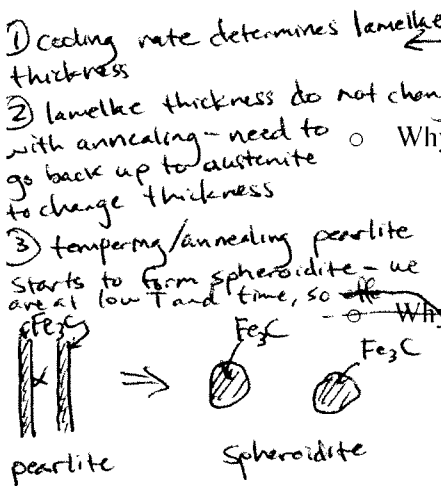 ① cooling rate determines lamellae
thickness
② lamellae thickness do not chan
with annealing - need to
go back up to austenite
to change thickness
○ Why
③ tempering/annealing pearlite
starts to form spheroidite - we
are at low T and time, so
○ Why
Fe₃C
α
Fe₃C
Fe₃C
pearlite
Spheroidite